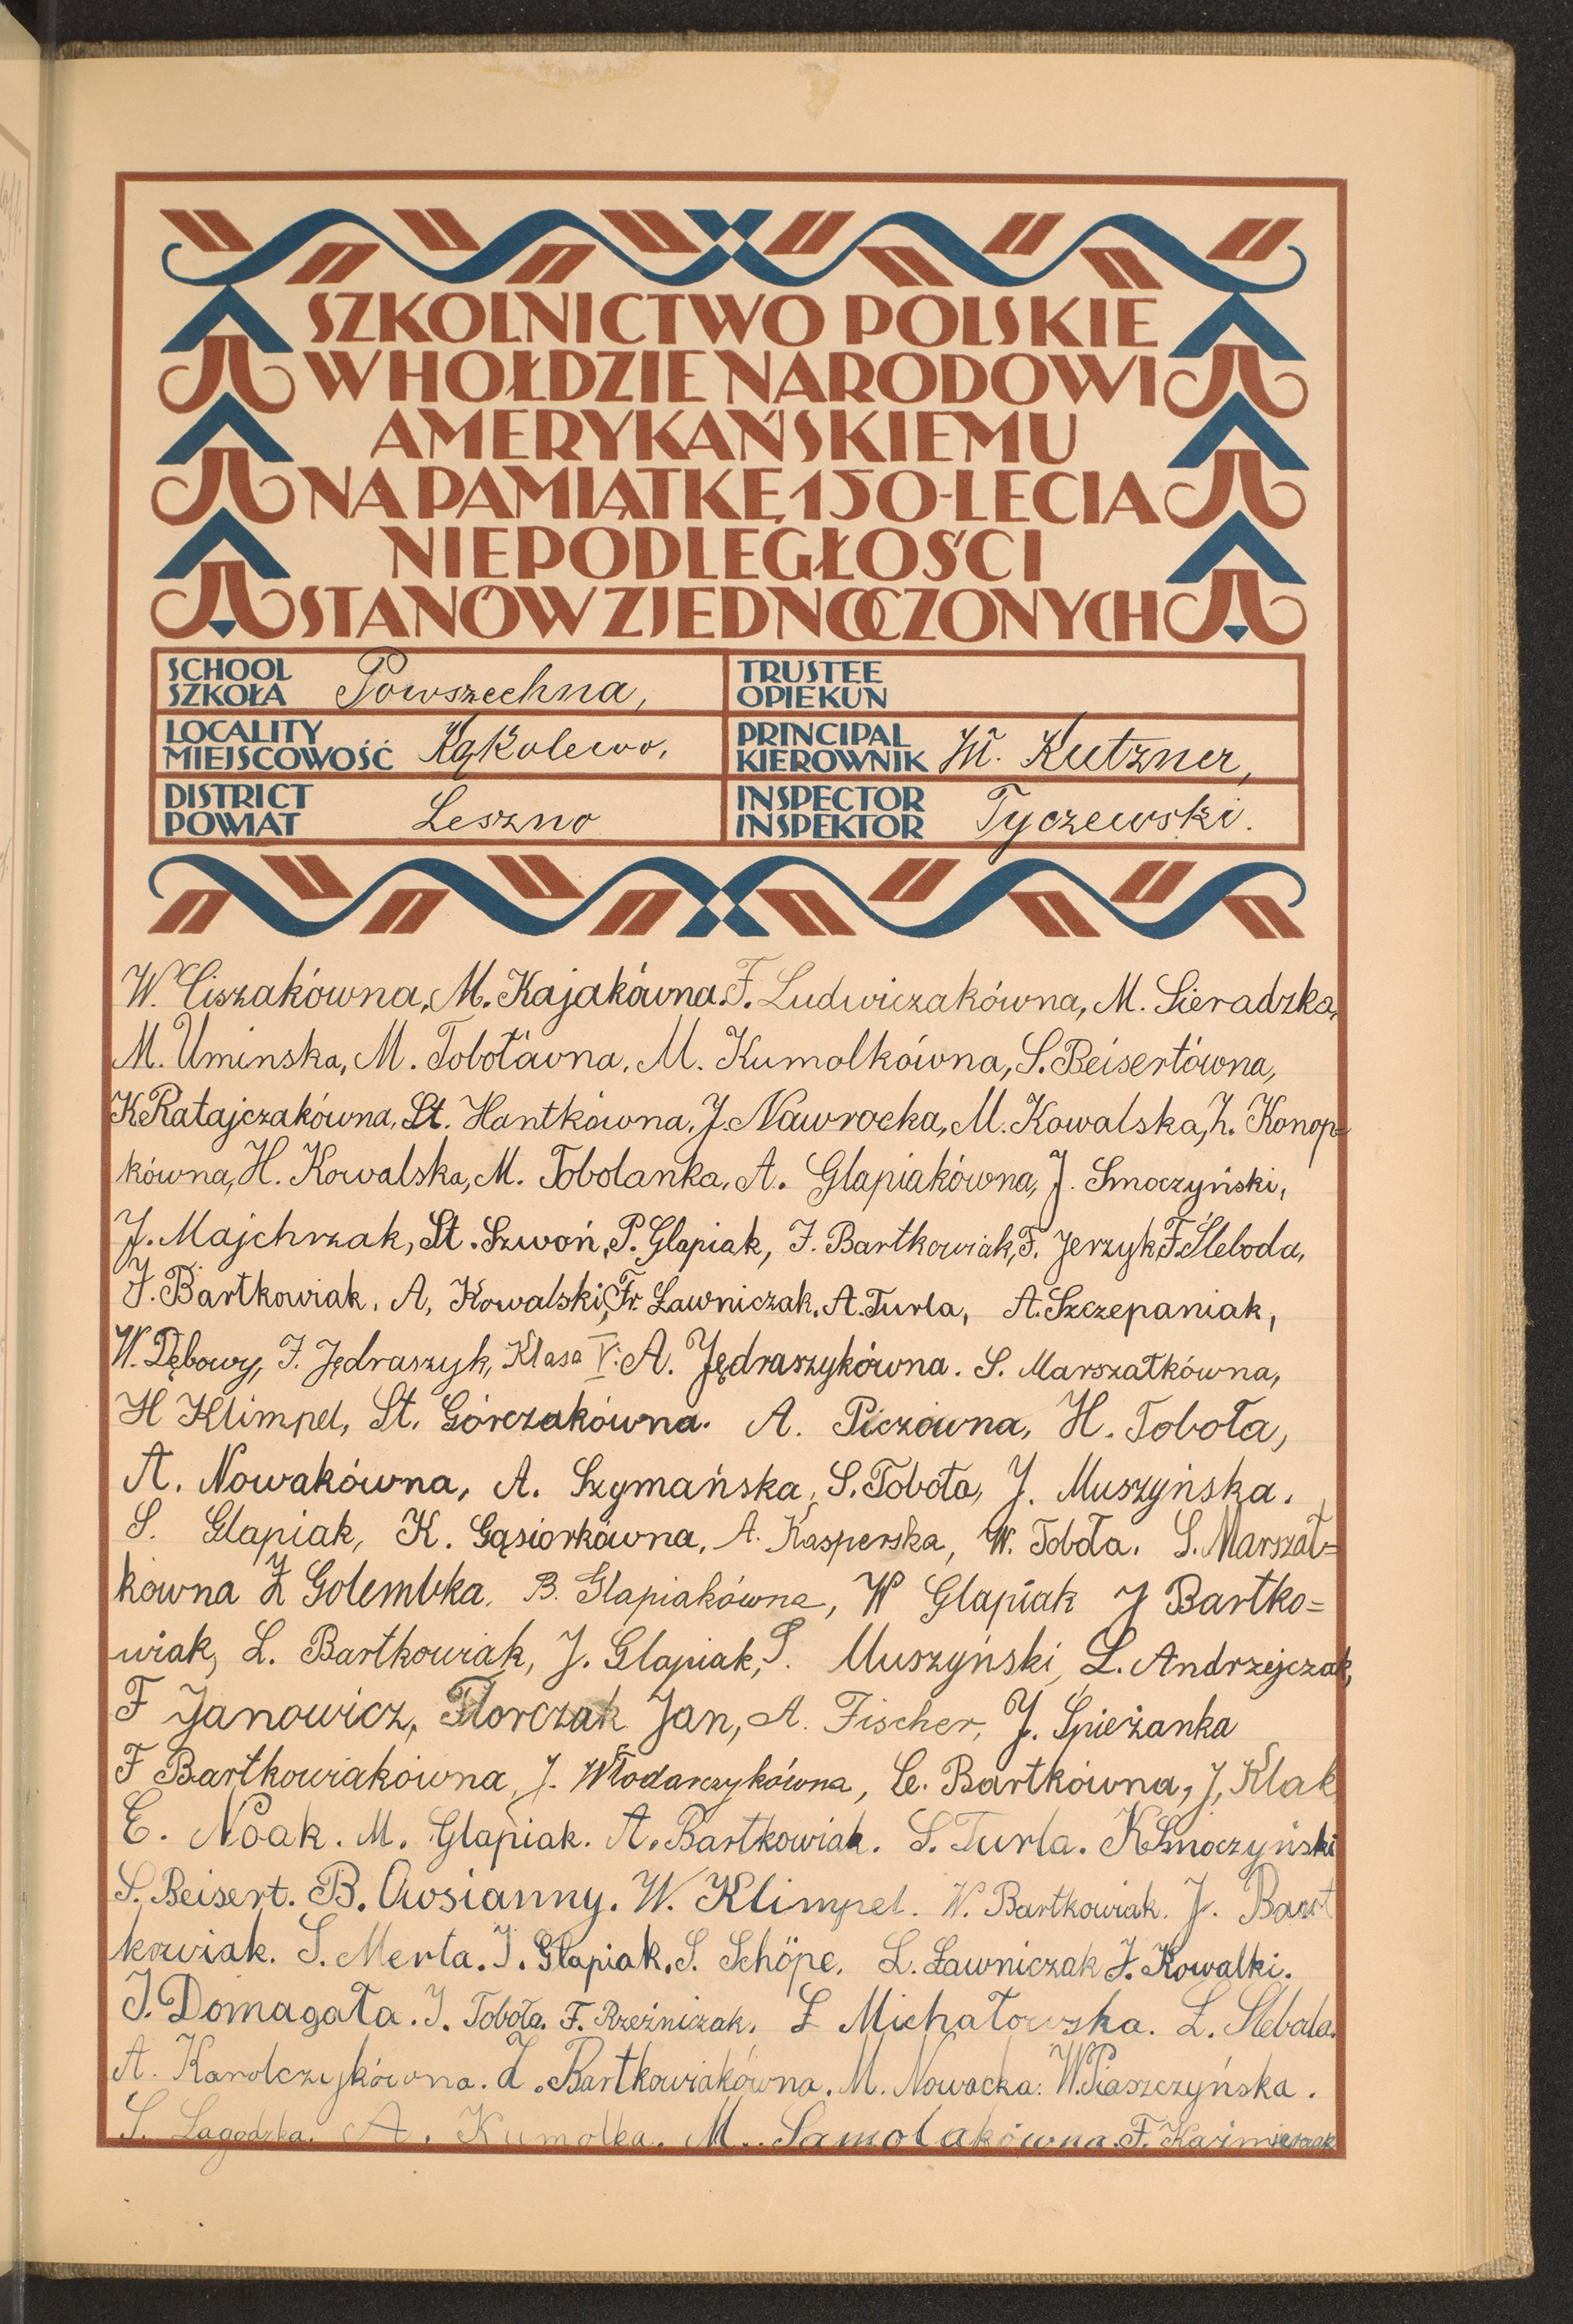 SZKOLNICTWO POLSKIE
W HOŁDZIE NARODOWI
AMERYKAŃSKIEMU
NA PAMIĄTKĘ 150-LECIA
NIEPODLEGŁOŚCI
STANÓW ZJEDNOCZONYCH
SCHOOL
SZKOŁA Powszechna,
TRUSTEE
OPIEKUN
LOCALITY
MIEJSCOWOŚĆ Kąkolewo.
PRINCIPAL
KIEROWNIK Wł. Kutzner,
DISTRICT
POWIAT Leszno
INSPECTOR
INSPEKTOR Tyczewski.
W. Ciszakówna, M. Kajakówna. F. Ludwiczakówna, M. Sieradzka,
M. Uminska, M. Tobołówna, M. Kumolkówna, S. Beisertówna,
K. Ratajczakówna, St. Hantkówna, J. Nawrocka, M. Kowalska, Z. Konop=
kówna, H. Kowalska, M. Tobolanka, A. Glapiakówna, J. Smoczyński,
J. Majchrzak, St. Szwoń, P. Glapiak, J. Bartkowiak, F. Jerzyk F. Śleboda,
J. Bartkowiak, A, Kowalski, Fr. Ławniczak, A. Turla, A. Szczepaniak,
W. Dębowy, J. Jędraszyk, Klasa V: A. Jędraszykówna. S. Marszałkówna,
H Klimpel, St. Górczakówna. A. Piczówna, H. Toboła,
A. Nowakówna, A. Szymańska, S. Toboła, J. Muszyńska.
S. Glapiak, K. Gąsiorkówna, A. Kasperska, W. Toboła. S. Marszał=
kówna Z Golembka. B. Glapiakówna, W Glapiak J Bartko=
wiak, L. Bartkowiak, J. Glapiak, S. Muszyński, L. Andrzejczak,
F Janowicz, Florczak Jan, A. Fischer, J. Spieżanka
F Bartkowiakówna, J. Włodarczykówna, Ce. Bartkówna, J, Klak
E. Noak. M. Glapiak. A. Bartkowiak. S. Turla. K Smoczyński
S. Beisert. B. Owsianny. W. Klimpel. W. Bartkowiak. J. Bart
kowiak. S. Merta. J. Glapiak. S. Schöpe. L. Ławniczak J. Kowalki.
J. Domagała. J. Toboła. F. Rzeźniczak. Z Michałowska. L. Sleboda.
A. Karolczykówna. Z. Bartkowiakówna. M. Nowacka. W. Piaszczyńska.
S. Łagodzka. A. Kumolka. M. Samolakówna. F. Kaźmierczak